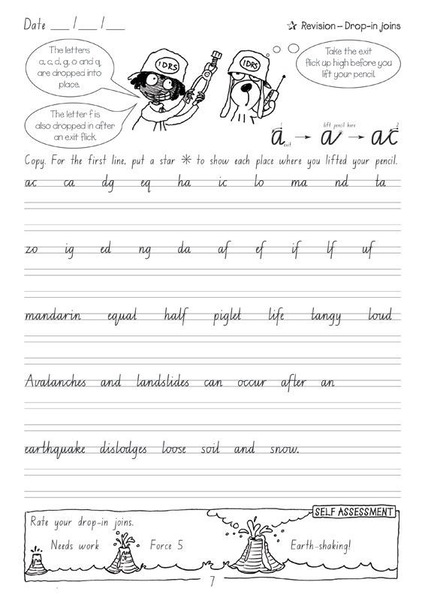 Date ___ / ___ / ___
☆ Revision – Drop-in joins
The letters
a, c, d, g, o and q,
are dropped into
place.
IDRS
IDRS
Take the exit
flick up high before you
lift your pencil.
The letter f is
also dropped in after
an exit flick.
1
exit
a → lift pencil here a → ac 2
Copy. For the first line, put a star ✳ to show each place where you lifted your pencil.
ac ca dg eq ha ic lo ma nd ta
zo ig ed ng da af ef if lf uf
mandarin equal half piglet life tangy loud
Avalanches and landslides can occur after an
earthquake dislodges loose soil and snow.
SELF ASSESSMENT
Rate your drop-in joins.
Needs work Force 5 Earth-shaking!
7